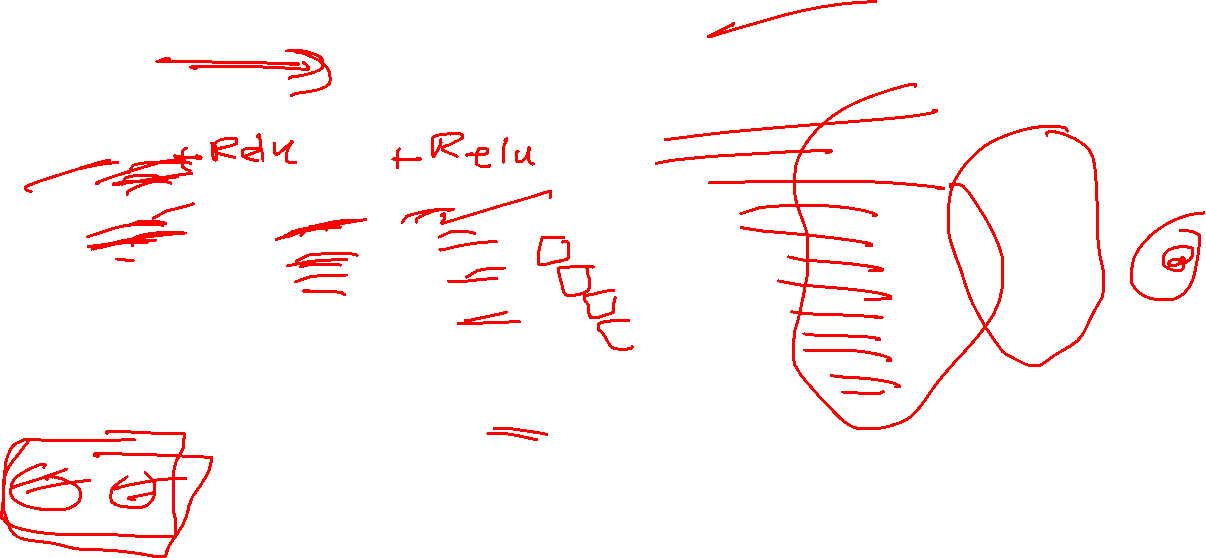 + Relu + Relu